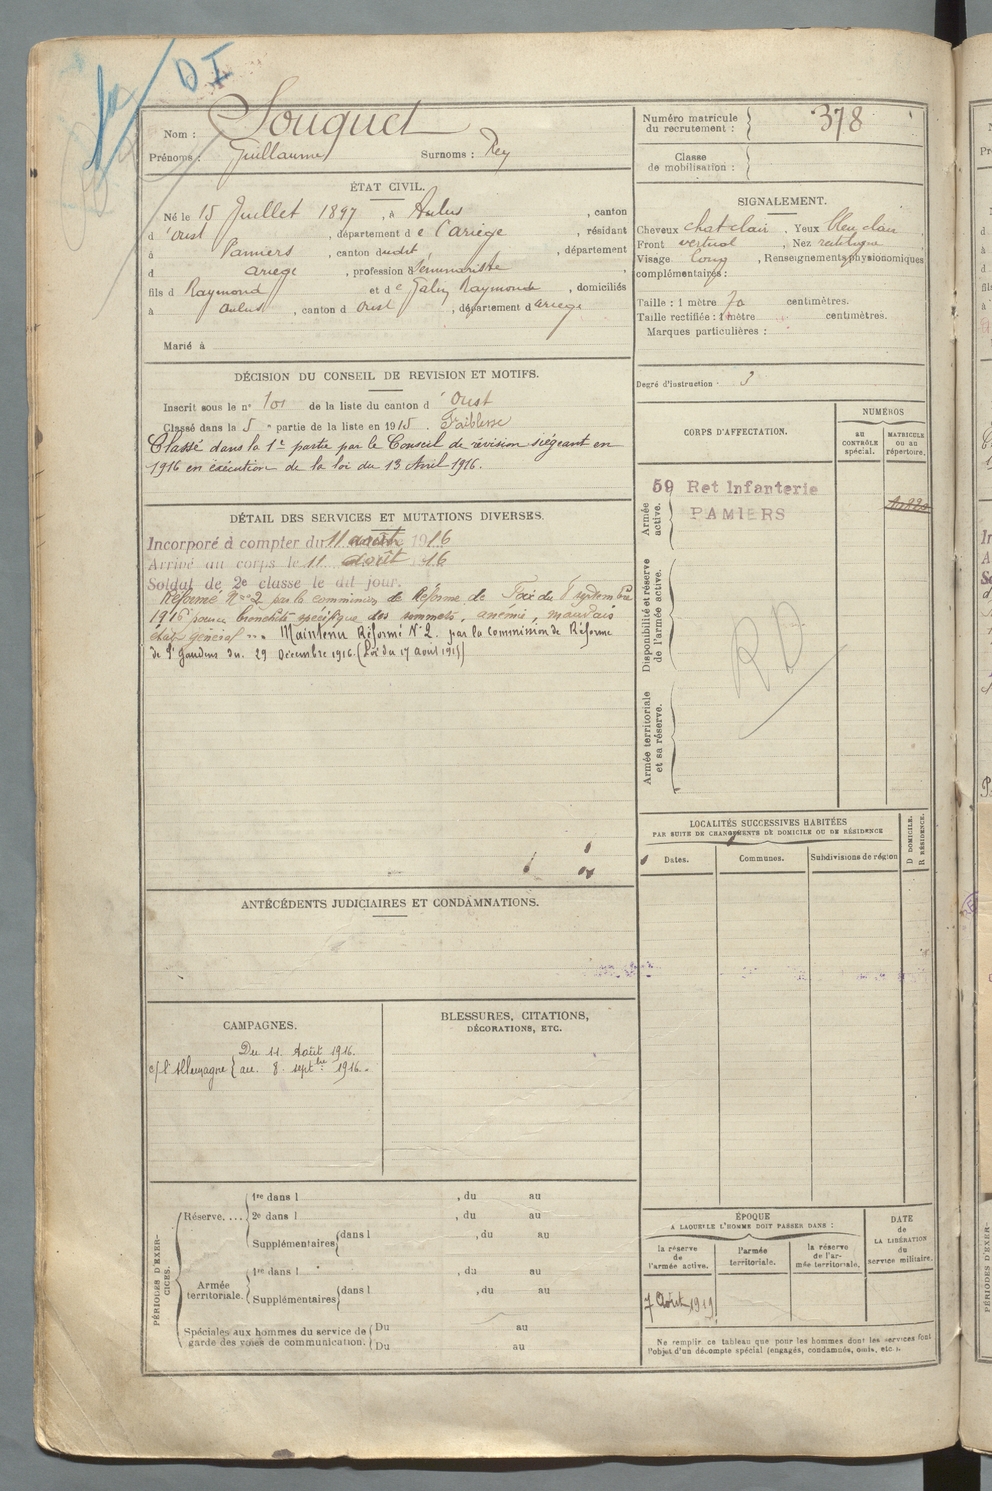 DI
Nom : Souquet
Prénoms : Guillaume Surnoms : Rey
Numéro matricule du recrutement : 378
Classe de mobilisation :
ÉTAT CIVIL.
Né le 15 Juillet 1897, à Aulus, canton
d'Oust, département de l'Ariège, résidant
à Pamiers, canton dudit, département
d Ariège, profession Séminariste
fils d Raymond et de Galin Raymonde, domiciliés
à Aulus, canton d Oust, département d Ariège
Marié à
SIGNALEMENT.
Cheveux chat clair, Yeux bleu clair,
Front vertical, Nez rectiligne
Visage long, Renseignements physionomiques
complémentaires :
Taille : 1 mètre 70 centimètres.
Taille rectifiée : 1 mètre centimètres.
Marques particulières :
Degré d'instruction : 3
DÉCISION DU CONSEIL DE REVISION ET MOTIFS.
Inscrit sous le n° 101 de la liste du canton d'Oust
Classé dans la 5e partie de la liste en 1915. Faiblesse
Classé dans la 1e partie par le Conseil de révision siégeant en
1916 en exécution de la loi du 13 Avril 1916.
DÉTAIL DES SERVICES ET MUTATIONS DIVERSES.
Incorporé à compter du 11 août 1916
Arrivé au corps le 11 août 16
Soldat de 2e classe le dit jour.
Réformé N° 2 par la commission de Réforme de Foix du 8 septembre
1916 pour bronchite spécifique des sommets, anémie, mauvais
état général Maintenu Réformé N° 2. par la Commission de Réforme
de St Gaudens du 29 Décembre 1916. (Loi du 17 Août 1915)
CORPS D'AFFECTATION.
NUMÉROS
au CONTRÔLE spécial.
MATRICULE ou au répertoire.
Armée active.
59 Ret Infanterie
PAMIERS
Disponibilité et réserve de l'armée active.
RD
Armée territoriale et sa réserve.
LOCALITÉS SUCCESSIVES HABITÉES
PAR SUITE DE CHANGEMENTS DE DOMICILE OU DE RÉSIDENCE
Dates.
Communes.
Subdivisions de région
D DOMICILE.
R RÉSIDENCE.
ANTÉCÉDENTS JUDICIAIRES ET CONDAMNATIONS.
CAMPAGNES.
c/ l'Allemagne { Du 11 Août 1916.
au 8 septbre 1916.
BLESSURES, CITATIONS,
DÉCORATIONS, ETC.
PÉRIODES D'EXERCICES.
Réserve....
1re dans l , du au
2e dans l , du au
Supplémentaires dans l , du au
Armée territoriale.
1re dans l , du au
Supplémentaires dans l , du au
Spéciales aux hommes du service de garde des voies de communication.
Du au
Du au
ÉPOQUE
A LAQUELLE L'HOMME DOIT PASSER DANS :
la réserve de l'armée active.
l'armée territoriale.
la réserve de l'armée territoriale.
DATE de LA LIBÉRATION du service militaire.
7 Août 1919
Ne remplir ce tableau que pour les hommes dont les services font
l'objet d'un décompte spécial (engagés, condamnés, omis, etc.).